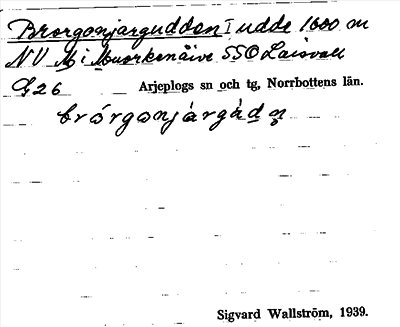 Brorgonjargudden I udde 1600 m
NV M i Muorkenåive SSO Laisvall
G 26 Arjeplogs sn och tg, Norrbottens län.
brórgonjárgàdn
Sigvard Wallström, 1939.